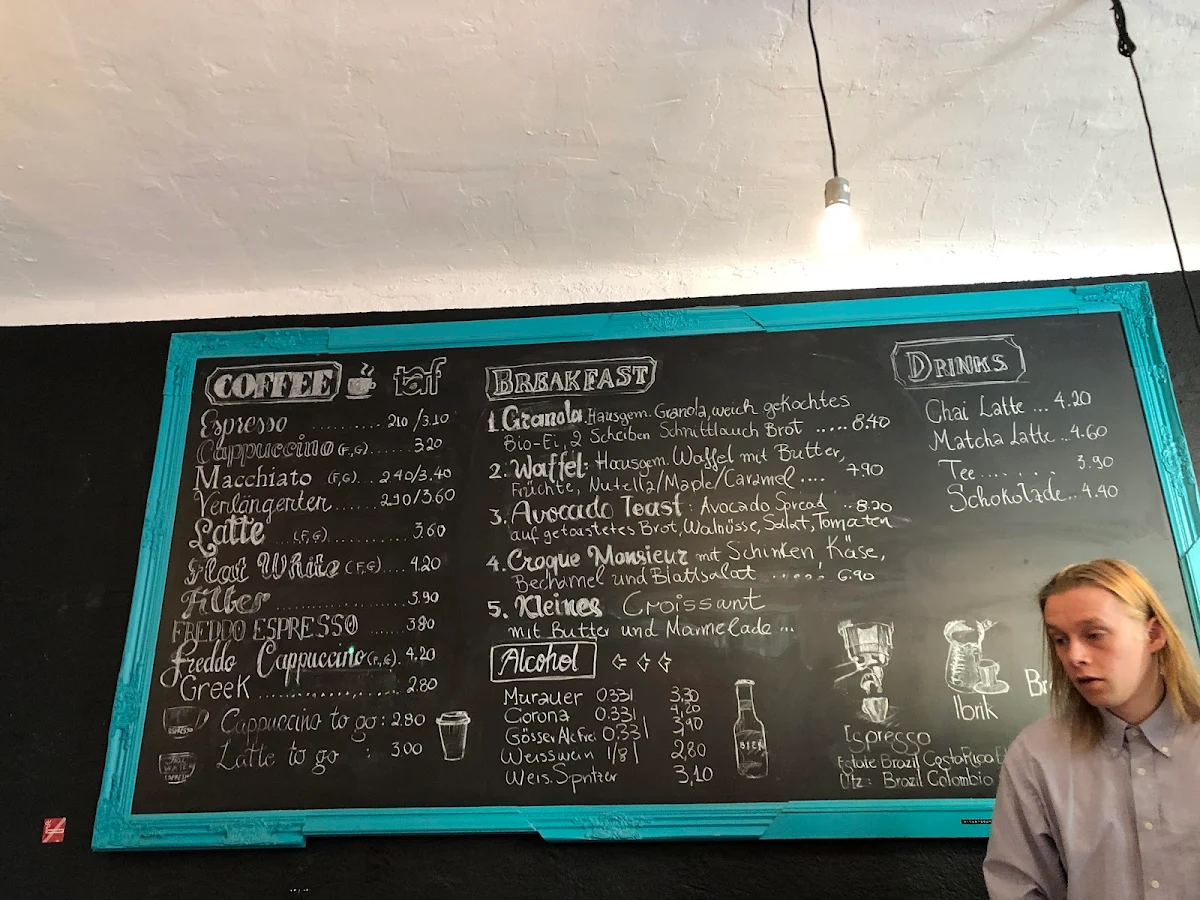 COFFEE taf
Espresso .......... 210/3.10
Cappuccino (F,G) ...... 3.20
Macchiato (F,G) .... 240/3.40
Verlängerter ...... 290/3.60
Latte ... (F,G) ........... 3.60
Flat White (F,G) .... 4.20
Filter .................... 3.90
FREDDO ESPRESSO ...... 3.80
freddo Cappuccino (F,G). 4.20
Greek .................... 2.80
Cappuccino to go: 2.80
Latte to go : 3.00
BREAKFAST
1. Granola, Hausgem. Granola, weich gekochtes
Bio-Ei, 2 Scheiben Schnittlauch Brot ..... 8.40
2. Waffel: Hausgem. Waffel mit Butter,
Früchte, Nutella/Maple/Caramel .... 7.90
3. Avocado Toast: Avocado Spread .. 8.20
auf getoastetes Brot, Walnüsse, Salat, Tomaten
4. Croque Monsieur mit Schinken Käse,
Bechamel und Blattsalat ...... 6.90
5. Kleines Croissant
mit Butter und Marmelade ...
Alcohol
Murauer 0.33l 3,30
Corona 0.33l
Gösser Alk frei 0.33l
Weisswein 1/8l 2,80
Weis. Spritzer 3,10
BIER
DRINKS
Chai Latte ... 4.20
Matcha Latte .. 4.60
Tee ....... 3.90
Schokolade .. 4.40
Ibrik
Br
Espresso
Estate Brazil Costa Rica
Utz: Brazil Colombia